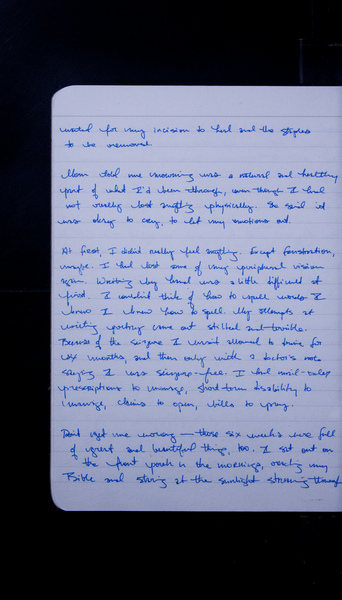 waited for my incision to heal and the staples
to be removed.
Mom told me mourning was a natural and healthy
part of what I'd been through, even though I had
not really lost anything physically. She said it
was okay to cry, to let my emotions out.
At first, I didn't really feel anything. Except frustration,
maybe. I had lost some of my peripheral vision
again. Writing by hand was a little difficult at
first. I couldn't think of how to spell words I
knew I knew how to spell. My attempts at
writing poetry came out stilled and terrible.
Because of the seizure I wasn't allowed to drive for
six months, and then only with a doctor's note
saying I was seizure-free. I had mail-order
prescriptions to manage, short-term disability to
manage, claims to open, bills to pay.
Don't get me wrong — those six weeks were full
of great and beautiful things, too. I sat out on
the front porch in the mornings, reading my
Bible and staring at the sunlight streaming through